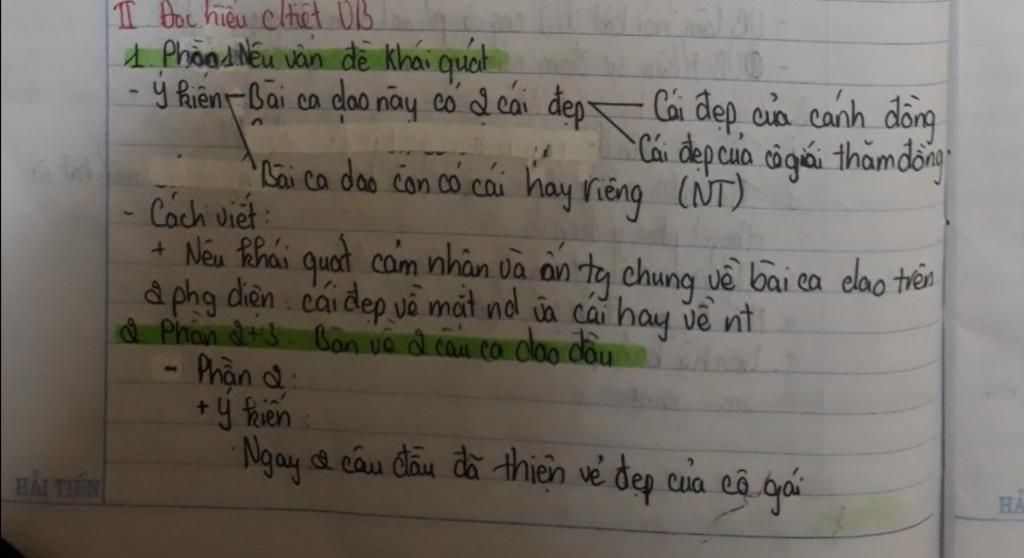 II Đọc hiểu c/tiết VB
1. Phần 1 Nêu vấn đề khái quát
- Ý kiến Bài ca dao này có 2 cái đẹp Cái đẹp của cánh đồng
Cái đẹp của cô gái thăm đồng.
Bài ca dao còn có cái hay riêng (NT)
- Cách viết:
+ Nêu khái quát cảm nhận và ấn tg chung về bài ca dao trên
2 phg diện: cái đẹp về mặt nd và cái hay về nt
2 Phần 2+3. Bàn về 2 câu ca dao đầu
- Phần 2:
+ Ý kiến:
Ngay 2 câu đầu đã thiện vẻ đẹp của cô gái
HẢI TIẾN
HẢ